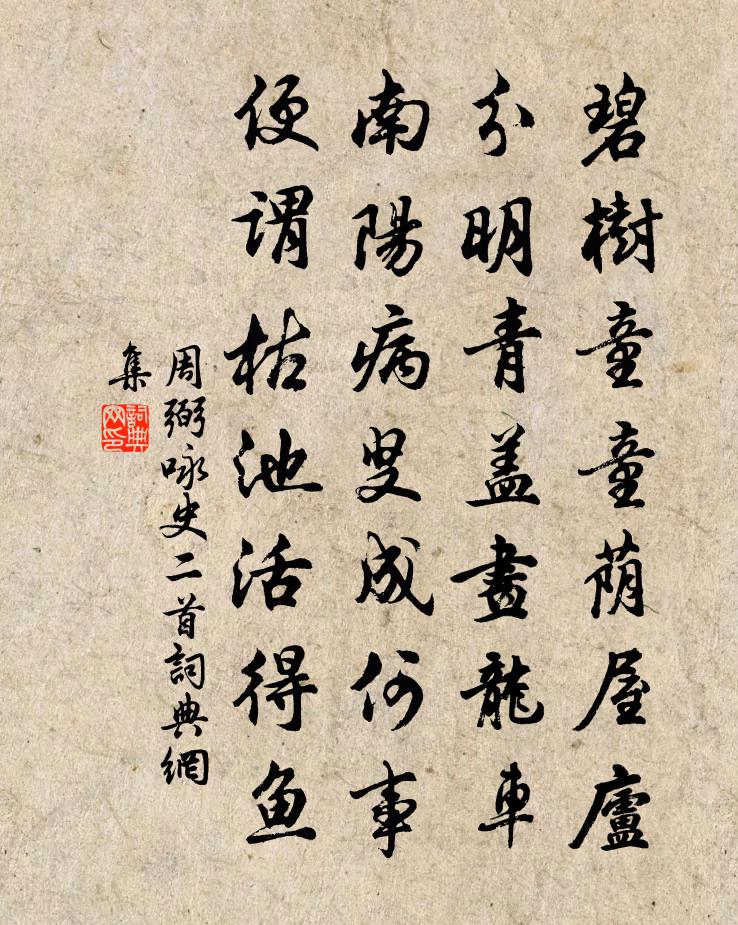 碧樹童童蔭屋廬
分明青盖畫龍車
南陽病叟成何事
便謂枯池活得魚
周弼咏史二首詞典網
集
詞典
网印